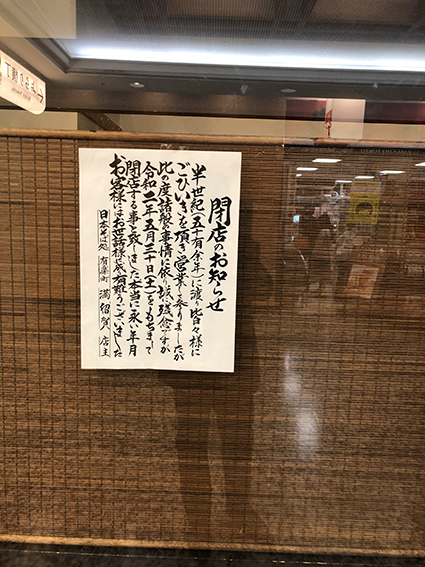 閉店のお知らせ
半世紀(五十有余年)に渡り皆々様に
ごひいきを頂き営業して来りましたが
此の度諸般の事情に依り誠に残念ですが
令和二年五月三十日(土)をもちまして
閉店する事と致しました本当に永い年月
お客様にはお世話様に成り有難うございました
日本そば処 有楽町 満留賀 店主